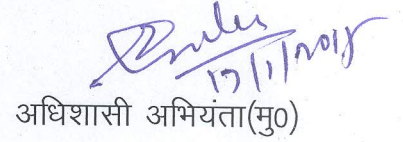 17/1/2018
अधिशासी अभियंता(मु0)